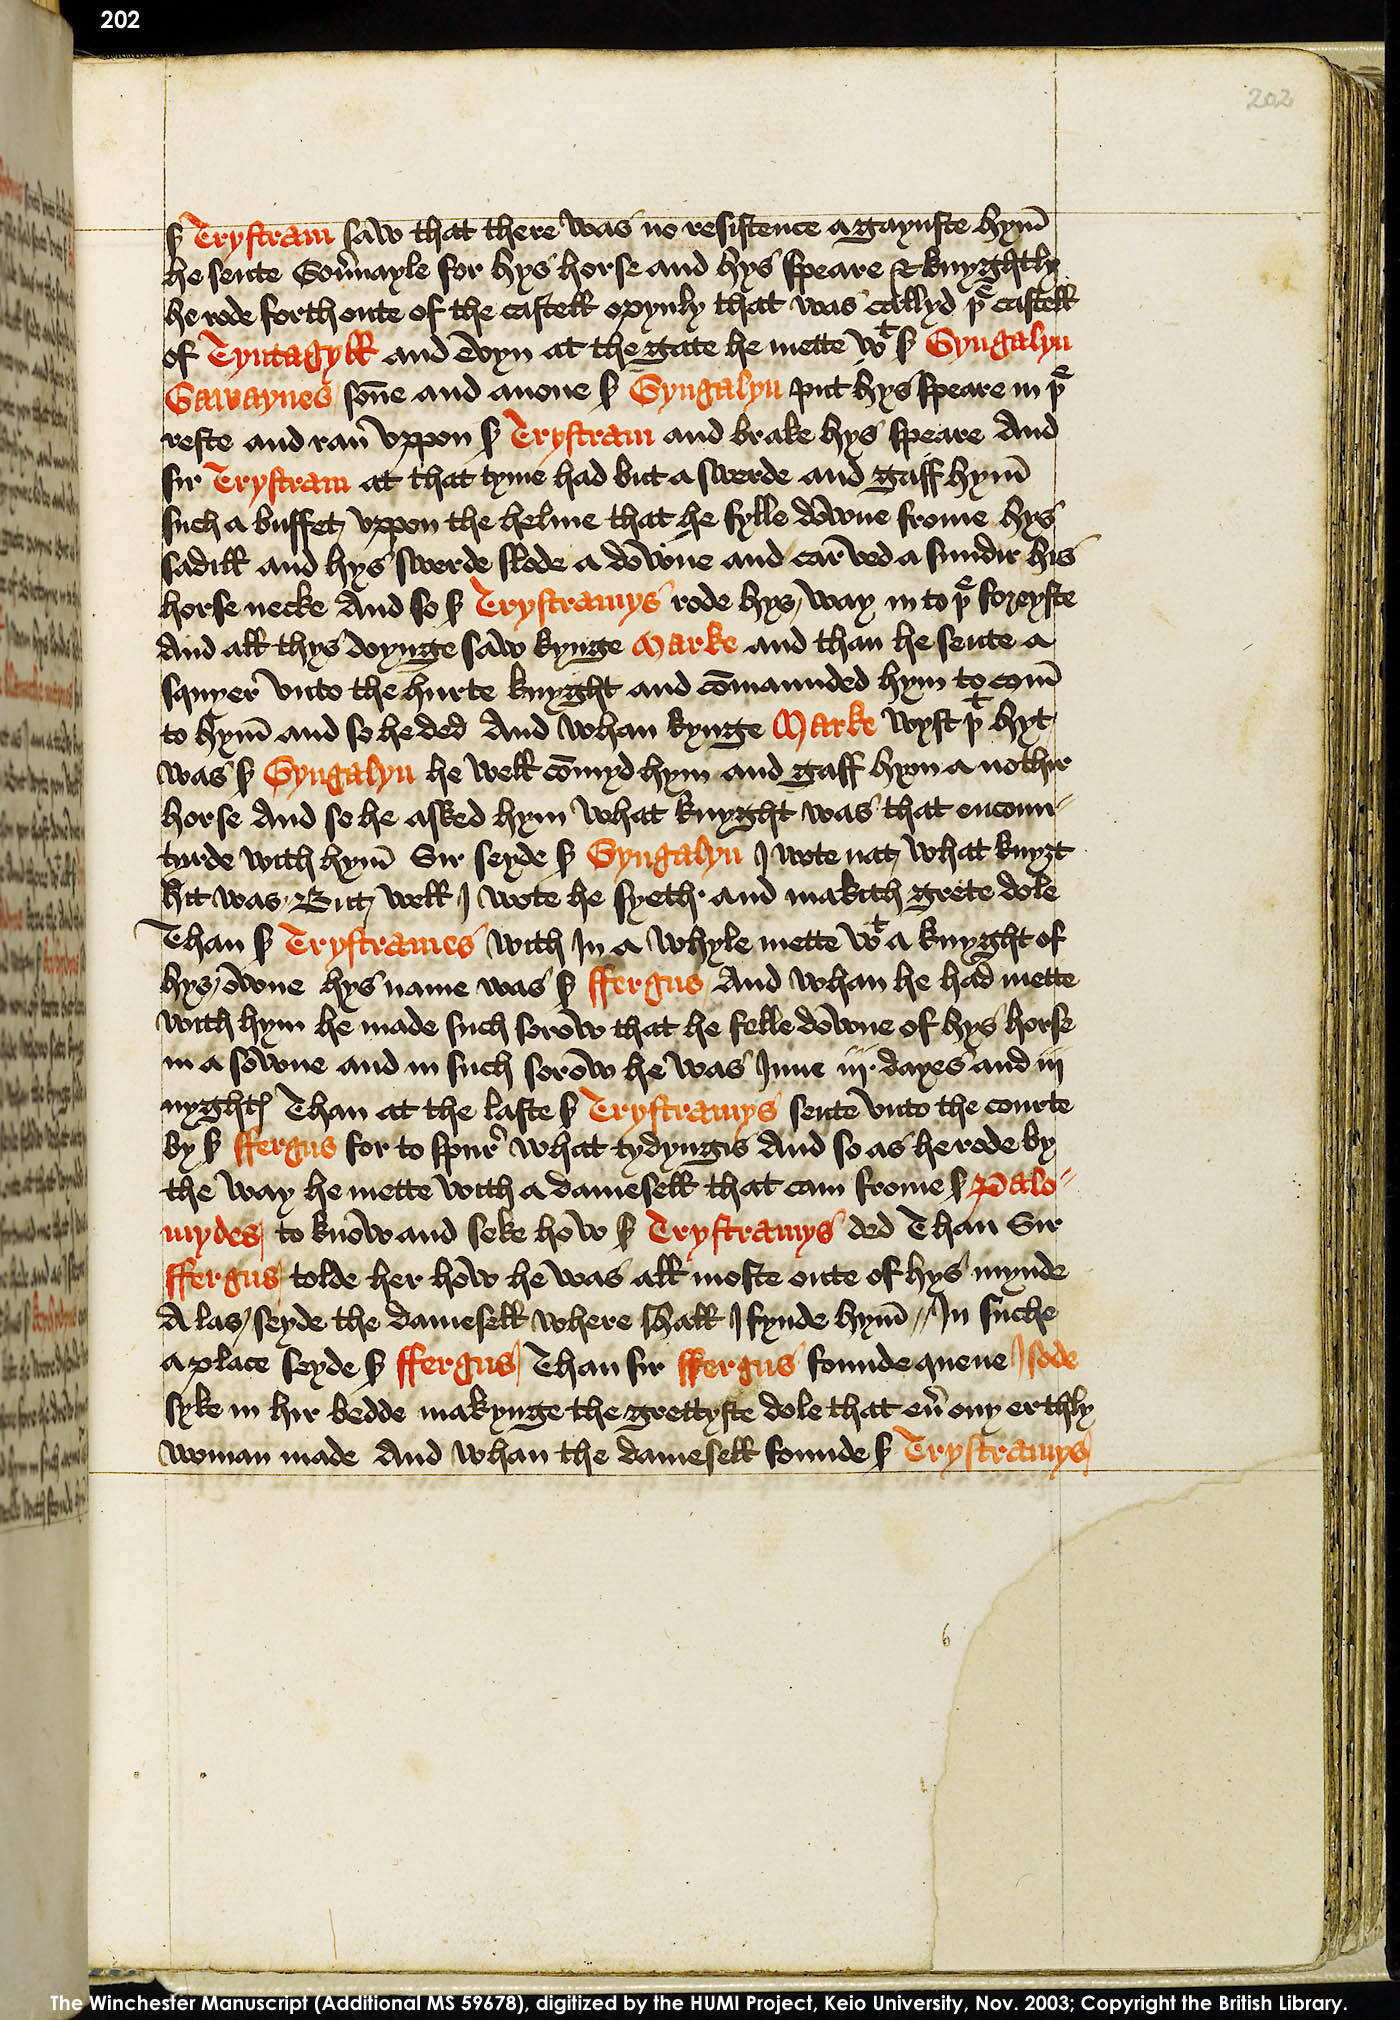 202
202
ẜ Trystram saw that there was no resistence a gaynste hym̄
he sente Gou̓nayle for hys horse and hys speare & knyghtly
he rode forth oute of the castell opynly that was callyd þe castell
of Tyntagyll and evyn at the gate he mette wt ẜ Gyngalyn
Gawaynes son̄e and anone ẜ Gyngalyn put hys speare in þe
reste and ran̄ uppon ẜ Trystram and brake hys speare And
sir Trystram at that tyme had but a swerde and gaff hym̄
such a buffet uppon the helme that he fylle downe frome hys
sadill and hys swerde slode a downe and carved a sundir his
horse necke And so ẜ Trystramys rode hys way in to þe foreyste
And all thys doynge saw kynge Marke and than he sente a
squyer unto the hurte knyght and com̄aunded hym to com̄
to hym̄ and so he ded And whan kynge Marke wyst þt hyt
was ẜ Gyngalyn he well com̄yd hym and gaff hym a nothir
horse And so he asked hym what knyght was that encoun-
turde with hym̄ Sir seyde ẜ Gyngalyn I wote nat what knyȝt
hit was But well I wote he syeth and makith grete dole
Than ẜ Trystrames with In a whyle mette wt a knyght of
hys owne hys name was ẜ ffergus And whan he had mette
with hym he made such sorow that he felle downe of hys horse
in a sowne and in such sorow he was Inne iij dayes and iij
nyghtꝭ Than at the laste ẜ Trystramys sente unto the courte
by ẜ ffergus for to spur̓ what tydyngis And so as he rode by
the way he mette with a damesell that cam frome ẜ Palo-
mydes to know and seke how ẜ Trystramys ded Than Sir
ffergus tolde her how he was all moste oute of hys mynde
A las seyde the damesell where shall I fynde hym̄ // In suche
a place seyde ẜ ffergus Than sir ffergus founde quene Isode
syke in hir bedde makynge the grettyste dole that eu̓ ony erthly
woman made And whan the damesell founde ẜ Trystramys
6
The Winchester Manuscript (Additional MS 59678), digitized by the HUMI Project, Keio University, Nov. 2003; Copyright the British Library.